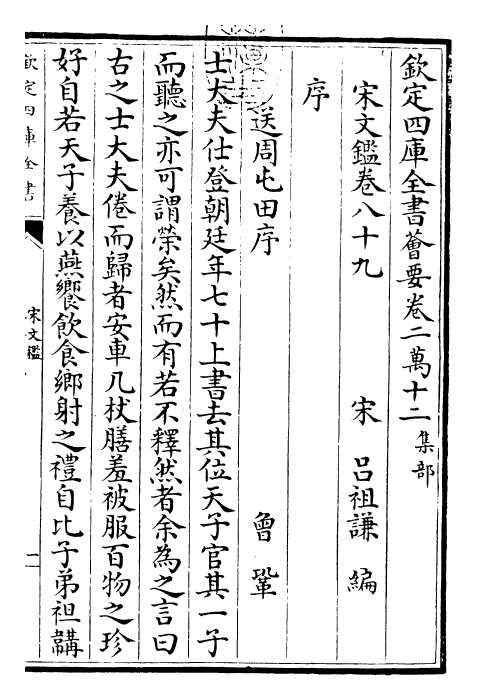 欽定四庫全書薈要卷二萬十二 集部
宋文鑑卷八十九
宋 吕祖謙 編
序
送周屯田序
曾 鞏
士大夫仕登朝廷年七十上書去其位天子官其一子
而聽之亦可謂榮矣然而有若不釋然者余為之言曰
古之士大夫倦而歸者安車几杖膳羞被服百物之珍
好自若天子養以燕饗飲食鄉射之禮自比子弟袒韝
欽定四庫全書
宋文鑑
一